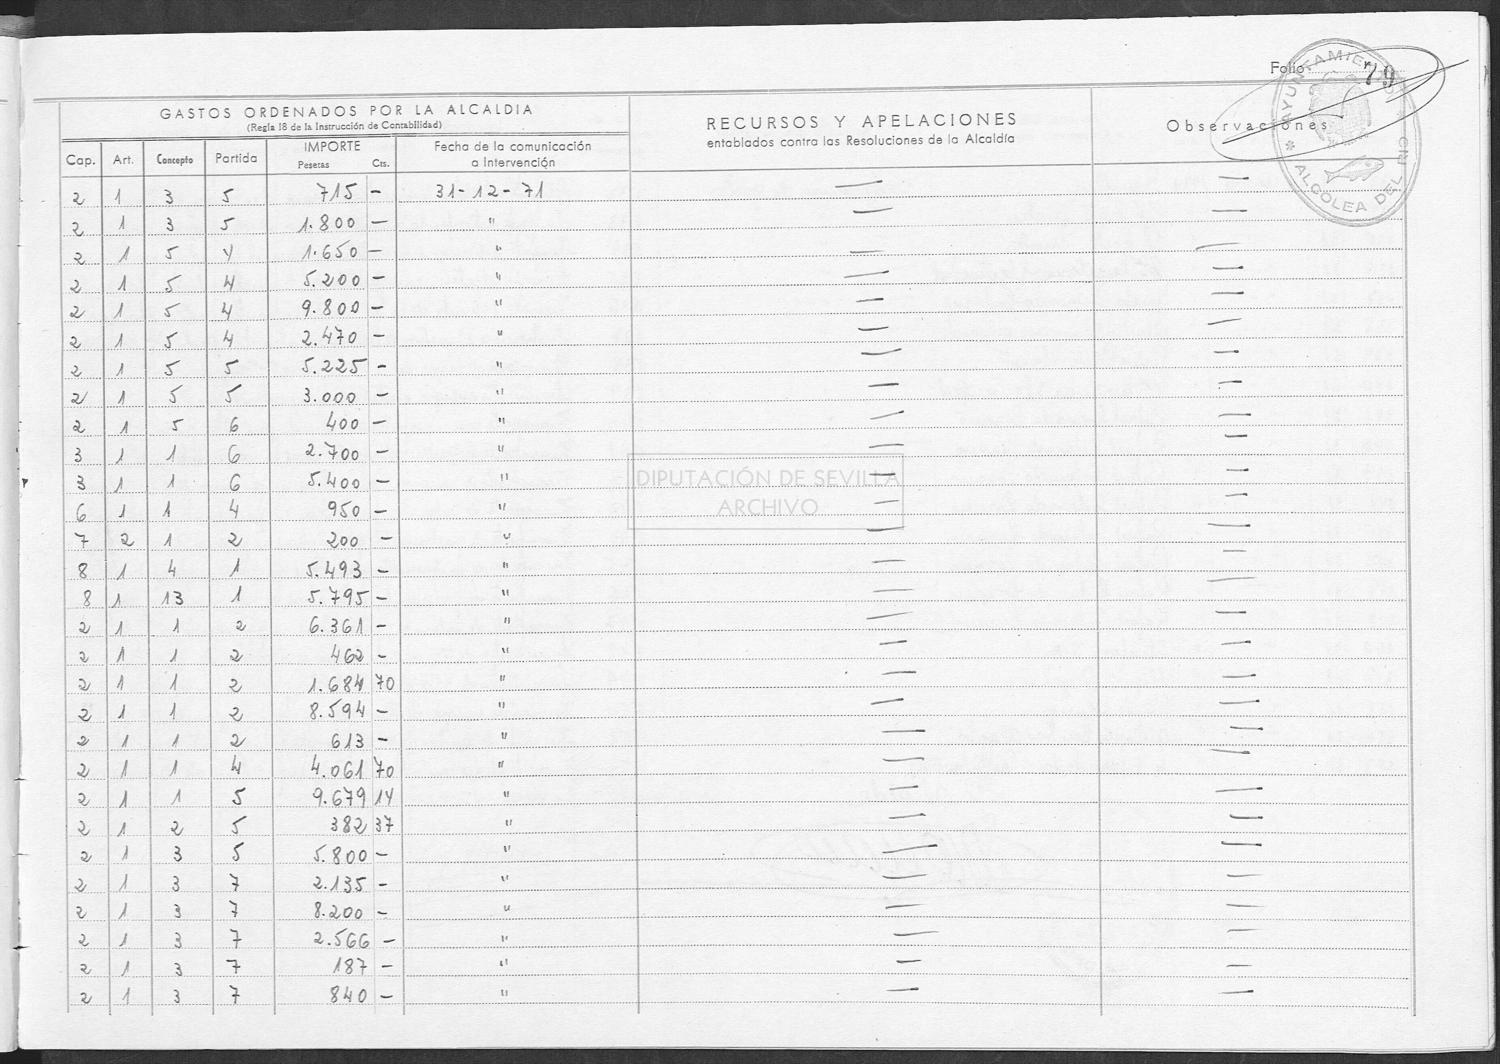 Folio 79
GASTOS ORDENADOS POR LA ALCALDIA
(Regla 18 de la Instrucción de Contabilidad)
RECURSOS Y APELACIONES
entablados contra las Resoluciones de la Alcaldía
Observaciones
AYUNTAMIENTO * ALCOLEA DEL RIO *
Cap. Art. Concepto Partida IMPORTE Pesetas Cts. Fecha de la comunicación a Intervención
2 1 3 5 715 - 31-12-71 — —
2 1 3 5 1.800 - " — —
2 1 5 4 1.650 - " — —
2 1 5 4 5.200 - " — —
2 1 5 4 9.800 - " — —
2 1 5 4 2.470 - " — —
2 1 5 5 5.225 - " — —
2 1 5 5 3.000 - " — —
2 1 5 6 400 - " — —
3 1 1 6 2.700 - " — —
3 1 1 6 5.400 - " — —
6 1 1 4 950 - " — —
7 2 1 2 200 - " — —
8 1 4 1 5.493 - " — —
8 1 13 1 5.795 - " — —
2 1 1 2 6.361 - " — —
2 1 1 2 462 - " — —
2 1 1 2 1.684 70 " — —
2 1 1 2 8.594 - " — —
2 1 1 2 613 - " — —
2 1 1 4 4.061 70 " — —
2 1 1 5 9.679 14 " — —
2 1 2 5 382 37 " — —
2 1 3 5 5.800 - " — —
2 1 3 7 2.135 - " — —
2 1 3 7 8.200 - " — —
2 1 3 7 2.566 - " — —
2 1 3 7 187 - " — —
2 1 3 7 840 - " — —
DIPUTACIÓN DE SEVILLA
ARCHIVO